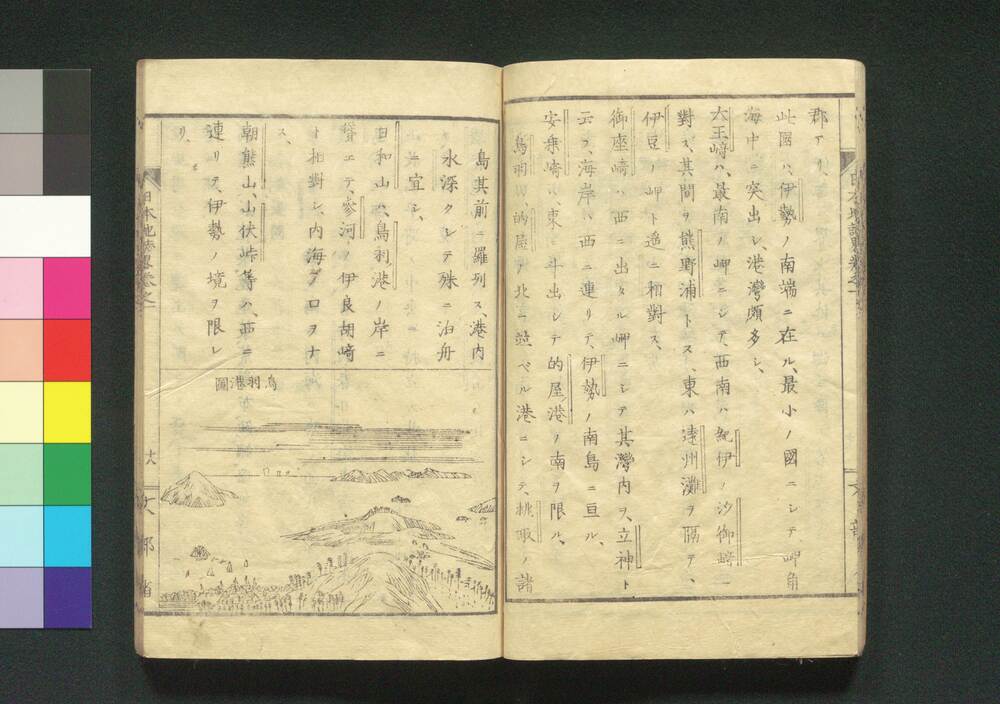 郡アリ、
此國ハ、伊勢ノ南端ニ在ル、最小ノ國ニシテ、岬角
海中ニ突出シ、港灣頗多シ、
大王﨑ハ、最南ノ岬ニシテ、西南ハ紀伊ノ汐御﨑ニ
對ス、其間ヲ熊野浦トス、東ハ遠州灘ヲ隔テ、
伊豆ノ岬ト遥ニ相對ス、
御座﨑ハ、西ニ出タル岬ニシテ其灣内ヲ、立神ト
云フ、海岸ハ、西ニ連リテ、伊勢ノ南島ニ亘ル、
安乗﨑ハ、東ニ斗出シテ的屋港ノ南ヲ限ル、
鳥羽ハ、的屋ノ北ニ並ベル港ニシテ、桃取ノ諸
島其前ニ羅列ス、港内
水深クシテ殊ニ泊舟
ニ宜シ、
日和山ハ、鳥羽港ノ岸ニ
聳エテ、參河ノ伊良胡﨑
ト相對シ、内海ノ口ヲナ
ス、
朝熊山、山伏峠等ハ、西ニ
連リテ、伊勢ノ境ヲ限レ
リ、
鳥羽港圖
日本地誌略卷之一
文部省